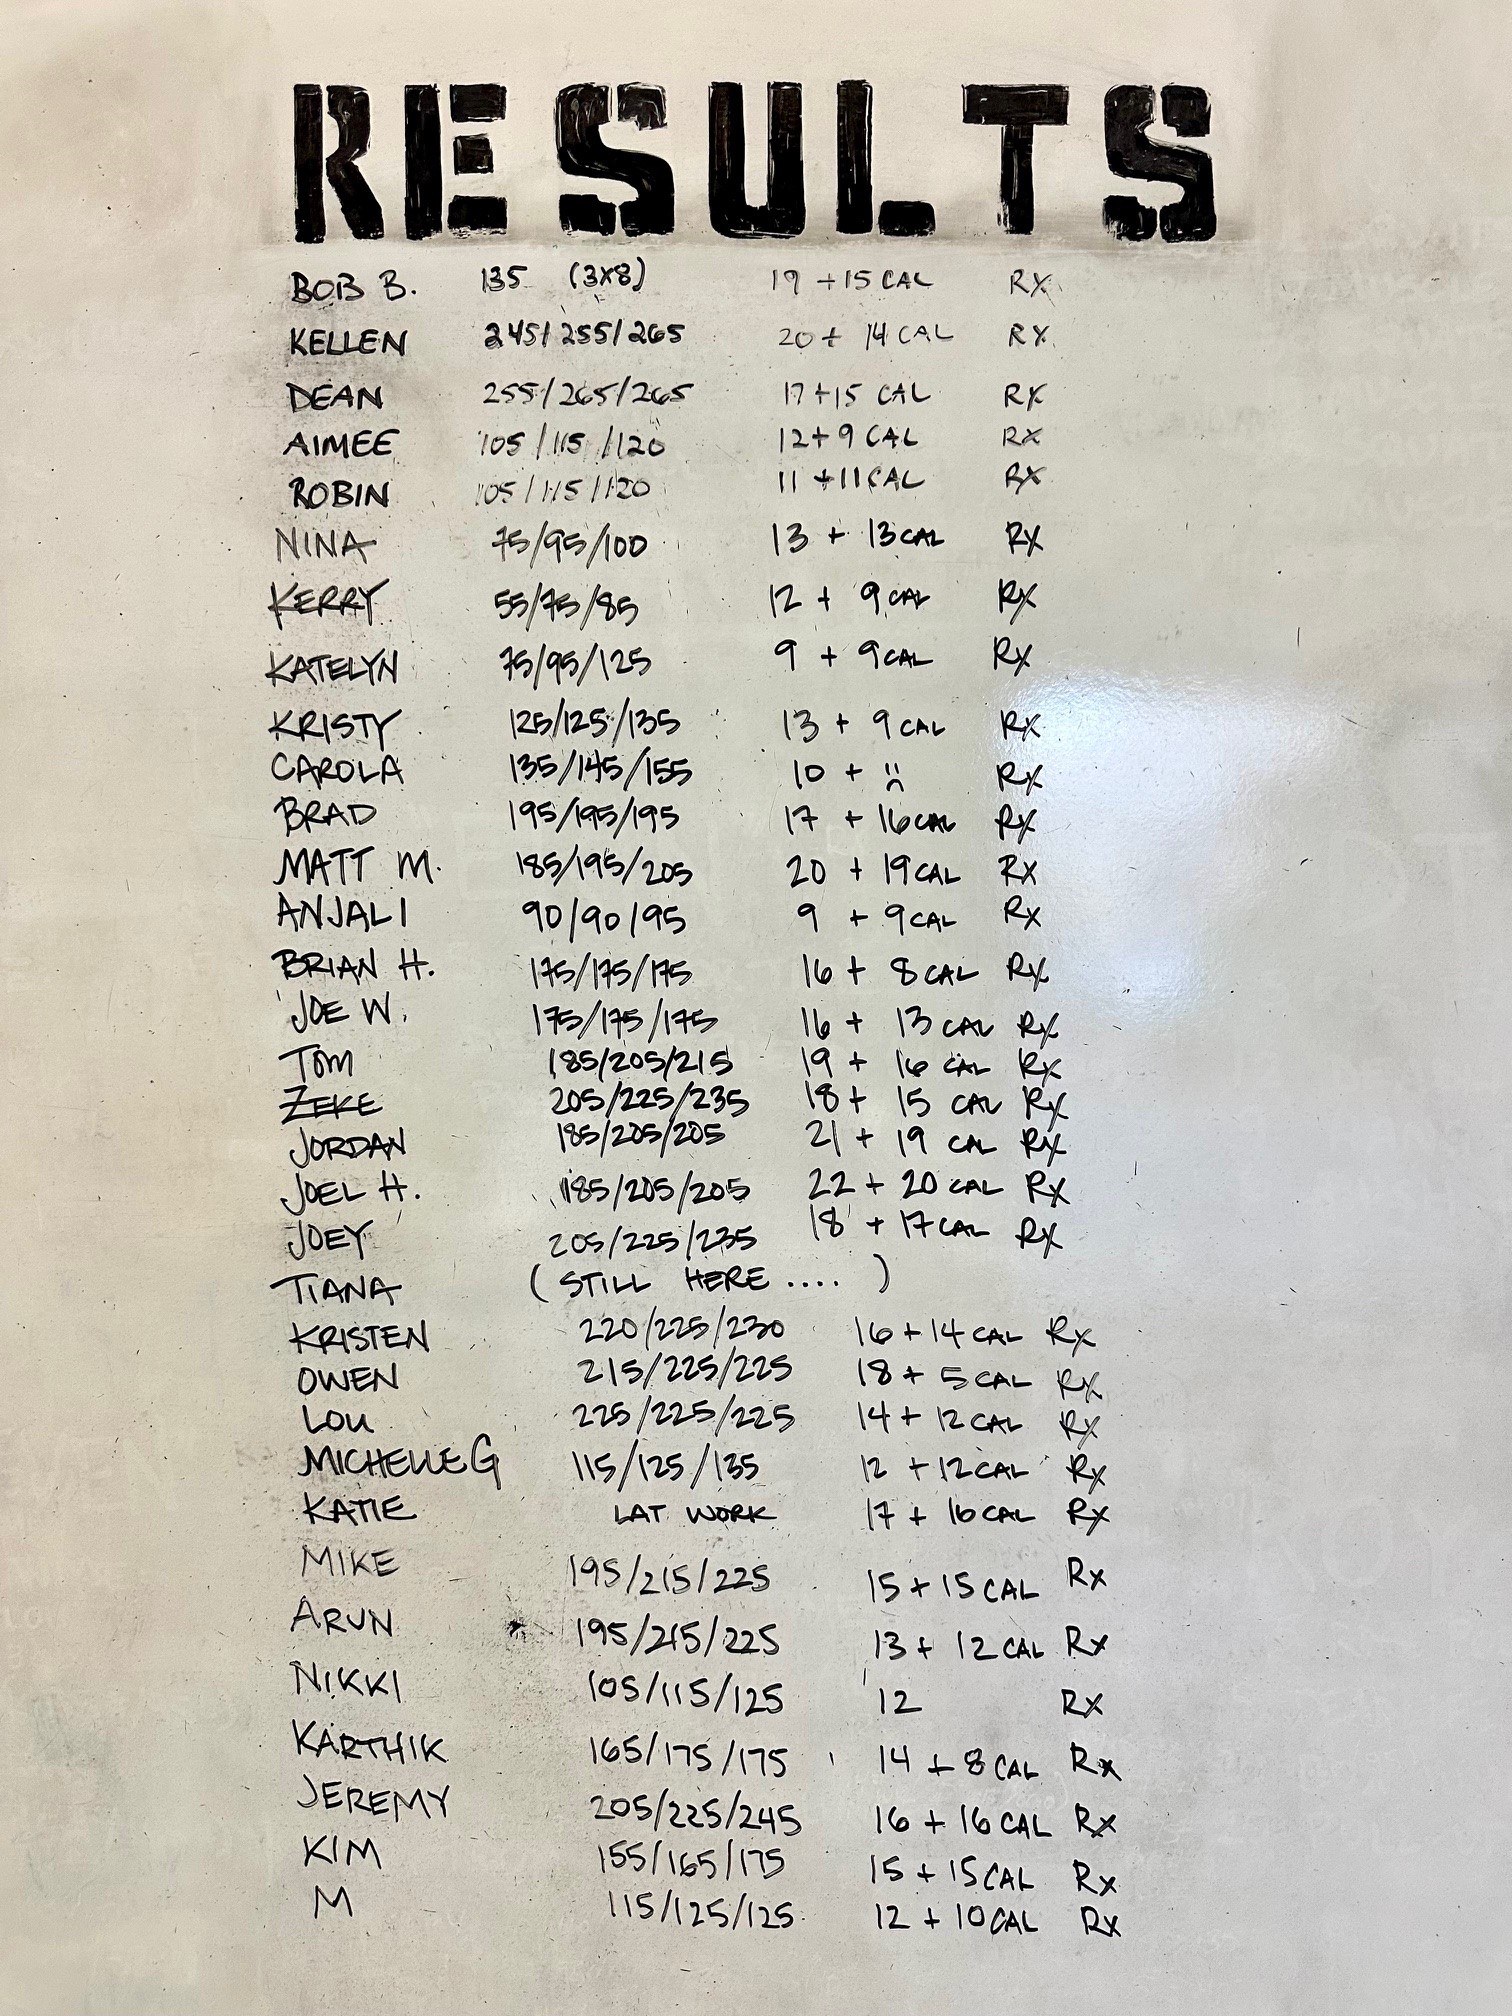 RESULTS
BOB B. 135 (3X8) 19 + 15 CAL RX
KELLEN 245/255/265 20 + 14 CAL RX
DEAN 255/265/265 17 + 15 CAL RX
AIMEE 105/115/120 12 + 9 CAL RX
ROBIN 105/115/120 11 + 11 CAL RX
NINA 75/95/100 13 + 13 CAL RX
KERRY 55/75/85 12 + 9 CAL RX
KATELYN 75/95/125 9 + 9 CAL RX
KRISTY 125/125/135 13 + 9 CAL RX
CAROLA 135/145/155 10 + :( RX
BRAD 195/195/195 17 + 16 CAL RX
MATT M. 185/195/205 20 + 19 CAL RX
ANJALI 90/90/95 9 + 9 CAL RX
BRIAN H. 175/175/175 16 + 8 CAL RX
JOE W. 175/175/175 16 + 13 CAL RX
TOM 185/205/215 19 + 16 CAL RX
ZEKE 205/225/235 18 + 15 CAL RX
JORDAN 185/205/205 21 + 19 CAL RX
JOEL H. 185/205/205 22 + 20 CAL RX
JOEY 205/225/235 18 + 17 CAL RX
TIANA (STILL HERE....)
KRISTEN 220/225/230 16 + 14 CAL RX
OWEN 215/225/225 18 + 5 CAL RX
LOU 225/225/225 14 + 12 CAL RX
MICHELLE G 115/125/135 12 + 12 CAL RX
KATIE LAT WORK 17 + 16 CAL RX
MIKE 195/215/225 15 + 15 CAL RX
ARUN 195/215/225 13 + 12 CAL RX
NIKKI 105/115/125 12 RX
KARTHIK 165/175/175 14 + 8 CAL RX
JEREMY 205/225/245 16 + 16 CAL RX
KIM 155/165/175 15 + 15 CAL RX
M 115/125/125 12 + 10 CAL RX